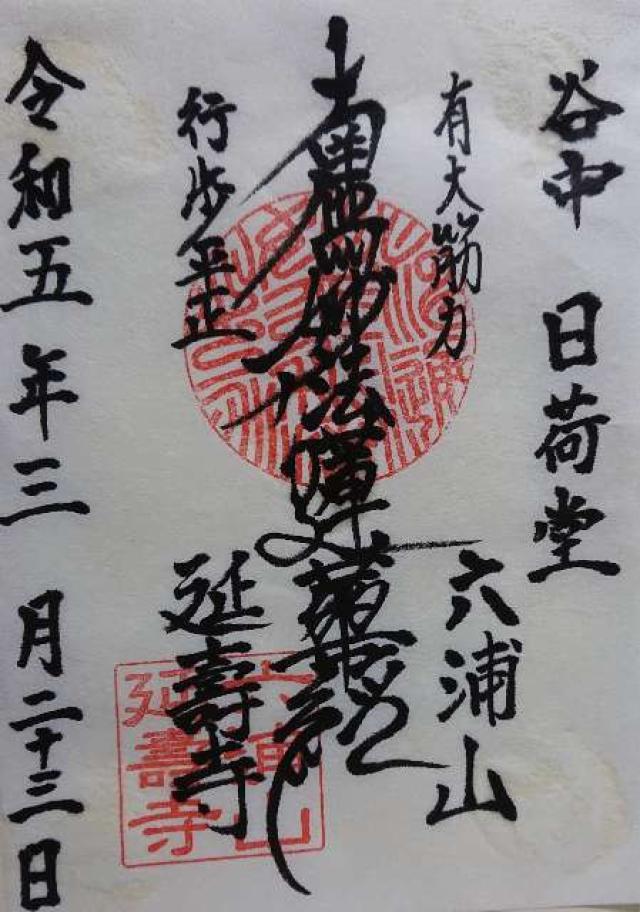 谷中 日荷堂
有大筋力
六浦山
南無妙法蓮華經
行歩平正
延壽寺
令和五年三月二十三日
六浦山
延壽寺